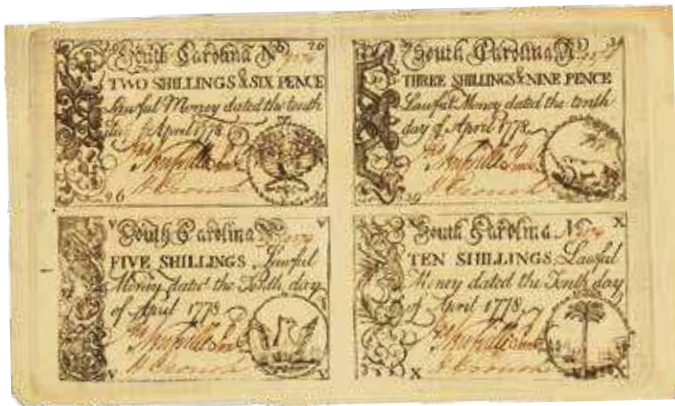 South Carolina No
26
TWO SHILLINGS & SIX PENCE
Lawful Money dated the tenth
day of April 1778
26
South Carolina No
THREE SHILLINGS & NINE PENCE
Lawful Money dated the tenth
day of April 1778
39
V South Carolina No V
FIVE SHILLINGS Lawful
Money dated the Tenth day
of April 1778
V V
South Carolina No X
TEN SHILLINGS, Lawful
Money dated the Tenth day
of April 1778
X X